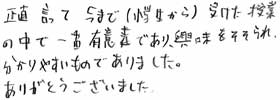 正直言って 今まで(小学生から)受けた授業
の中で一番有意義であり、興味をそそられ、
分かりやすいものでありました。
ありがとうございました。